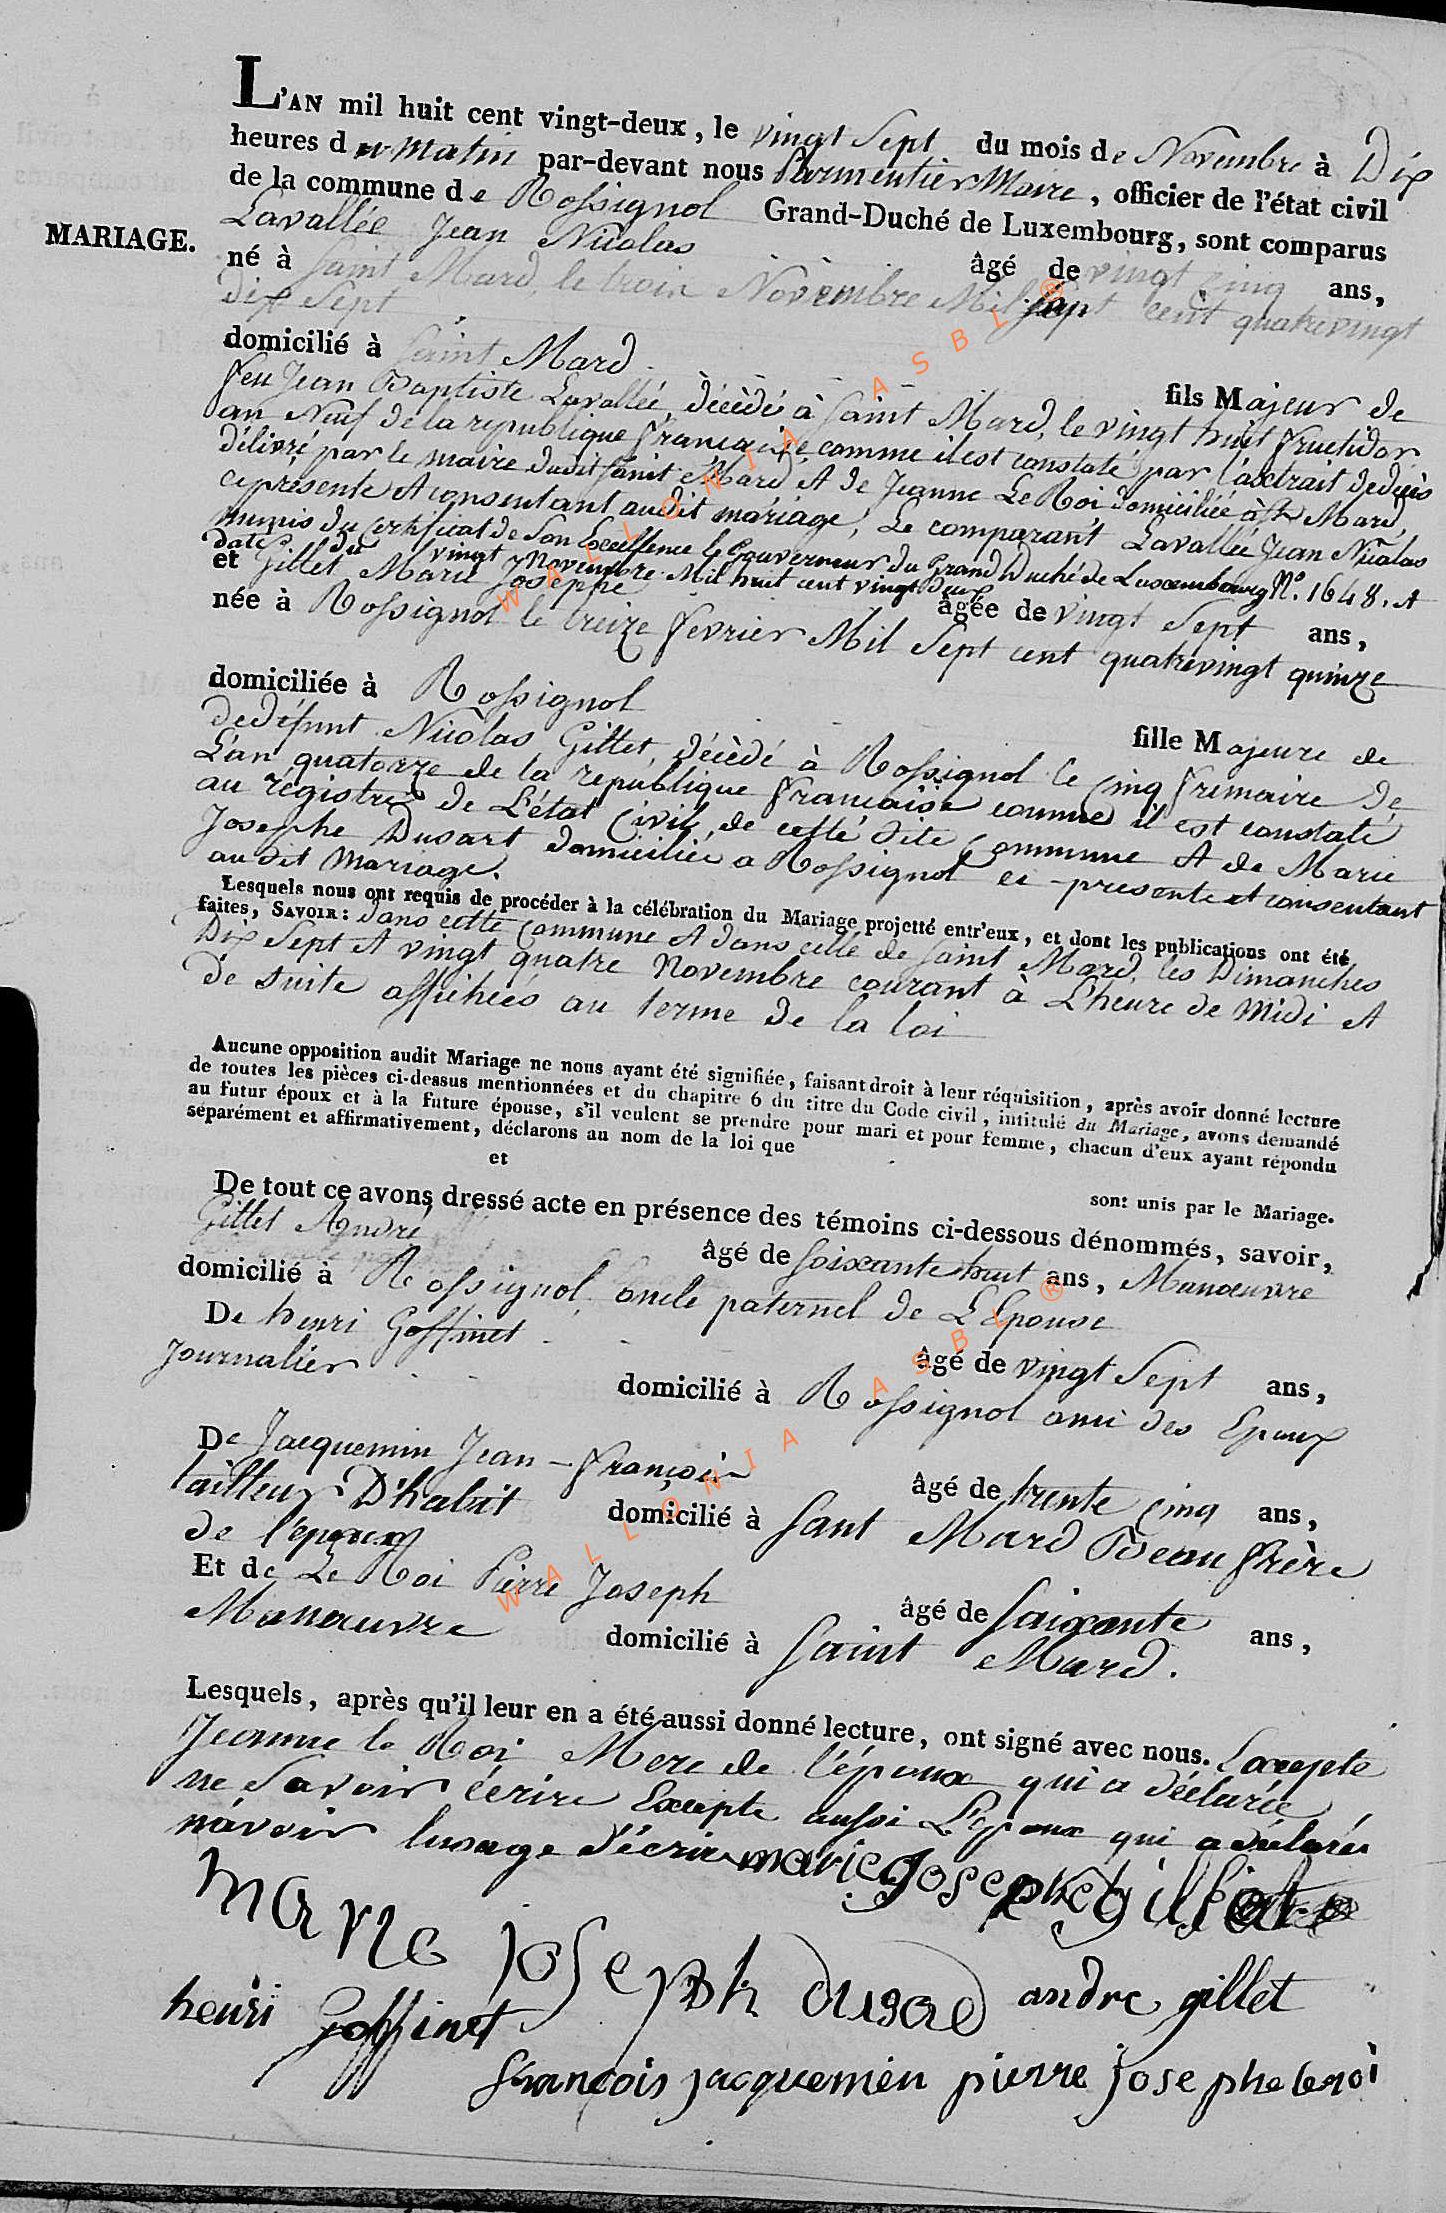 L'AN mil huit cent vingt-deux, le vingt Sept du mois de Novembre à Dix
heures du Matin par-devant nous Parmentier Maire, officier de l'état civil
de la commune de Rossignol Grand-Duché de Luxembourg, sont comparus
MARIAGE.
Lavallée Jean Nicolas âgé de vingt cinq ans,
né à Saint Mard, le trois Novembre Mil sept cent quatrevingt
dix Sept
domicilié à Saint Mard fils Majeur de
feu Jean Baptiste Lavallée, décédé à Saint Mard, le vingt huit fructidor
an Neuf de la republique francaise, comme il est constaté par l'axtrait dedécès
délivré par le maire dudit Saint Mard et de Jeanne Le Roi domiciliée à St Mard,
ciprésente et consentant audit mariage, Le comparant Lavallée Jean Nicolas
munis du Certificat de Son Excellence le Gouverneur du Grand Duché de Luxembourg N°. 1648. et
date du vingt Novembre Mil huit cent vingt Deux
et Gillet Marie Joseppe âgée de vingt Sept ans,
née à Rossignol le treize fevrier Mil Sept cent quatrevingt quinze
domiciliée à Rossignol fille Majeure de
de défunt Nicolas Gillet, décèdé à Rossignol le cinq frimaire de
L'an quatorze de la republique francaise comme il est constaté
au régistre de L'état Civil, de cette dite Commune et de Marie
Josephe Dusart domiciliée a Rossignol ci-presente et consentant
au dit Mariage.
Lesquels nous ont requis de procéder à la célébration du Mariage projetté entr'eux, et dont les publications ont été
faites, SAVOIR: dans cette Commune et dans celle de Saint Mard, les Dimanches
Dix Sept et vingt quatre Novembre courant à L'heure de Midi et
de suite affichées au terme de la loi
Aucune opposition audit Mariage ne nous ayant été signifiée, faisant droit à leur réquisition, après avoir donné lecture
de toutes les pièces ci-dessus mentionnées et du chapitre 6 du titre du Code civil, intitulé du Mariage, avons demandé
au futur époux et à la future épouse, s'il veulent se prendre pour mari et pour femme, chacun d'eux ayant répondu
séparément et affirmativement, déclarons au nom de la loi que
et
sont unis par le Mariage.
De tout ce avons dressé acte en présence des témoins ci-dessous dénommés, savoir,
Gillet André âgé de soixante huit ans, Manœuvre
domicilié à Rossignol, oncle paternel de L'Epouse
De henri Goffinet âgé de vingt Sept ans,
Journalier domicilié à Rossignol ami des Epoux
De Jacquemin Jean-François âgé de trente cinq ans,
tailleur D'habit domicilié à Sant Mard Beau frère
de l'époux
Et de Le Roi Pierre Joseph âgé de Soixante ans,
Manœuvre domicilié à Saint Mard.
Lesquels, après qu'il leur en a été aussi donné lecture, ont signé avec nous. Excepte
Jeanne le Roi Mere de l'époux qui a déclarée
ne Savoir écrire Excepte aussi L'époux qui a déclarée
n'avoir lusage d'écrire marie Josephe gillet
marie joseph dusard andre gillet
henri Goffinet
françois jacquemin pierre josephe leroi
WALLONIA ASBL ®
WALLONIA ASBL ®